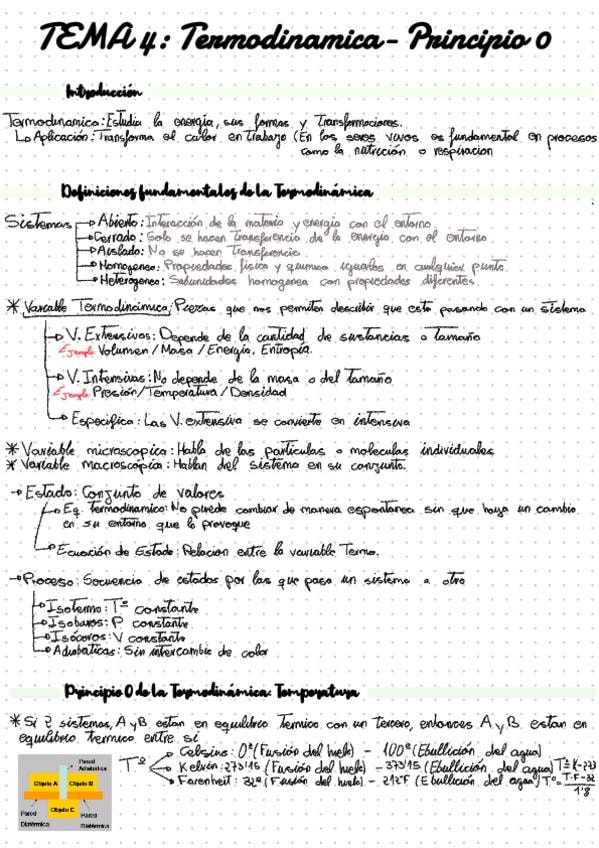 TEMA 4: Termodinamica- Principio 0
Introducción
Termodinamica: Estudia la energia, sus formas y Transformaciones.
Lo Aplicación: Transforma el calor en Trabajo (En los seres vivos es fundamental en procesos
como la nutrición o respiracion
Definiciones fundamentales de la Termodinámica
Sistemas → Abierto: Interacción de la materia y energia con el entorno
→ Cerrado: Solo se hacen Transferencia de la energía con el entorno
→ Aislado: No se hacen Transferencia
→ Homogeneo: Propiedades fisica y quimica iguales en cualquier punto
→ Heterogeneo: Subunidades homogenea con propiedades diferentes
* Variable Termodinámica: Piezas que nos permiten describir que esta pasando con un sistema
→ V. Extensivas: Depende de la cantidad de sustancias o tamaño
Ejemplo: Volumen / Masa / Energía, Entropía.
→ V. Intensivas: No depende de la masa o del Tamaño
Ejemplo: Presión/Temperatura/Densidad
→ Especifica: Las V. extensiva se convierte en intensiva
* Variable microscopica: Habla de las particulas o moleculas individuales
* Variable macroscópica: Hablan del sistema en su conjunto.
→ Estado: Conjunto de valores
→ Eq. Termodinamico: No puede cambiar de manera espontanea sin que haya un cambio
en su entorno que lo provoque
→ Ecuación de Estado: Relacion entre la variable Termo.
→ Proceso: Secuencia de estados por las que pasa un sistema a otro
→ Isotermo: Tª constante
→ Isobaros: P constante
→ Isócoros: V constante
→ Adiabaticas: Sin intercambio de calor
Principio 0 de la Termodinámica: Temperatura
* Si 2 sistemas, A y B estan en equilibrio Termico con un tercero, entonces A y B estan en
equilibrio termico entre si
Tª → Celsius: 0º (Fusión del hielo) - 100º (Ebullición del agua)
→ Kelvin: 273'15 (Fusión del hielo) - 373'15 (Ebullición del agua) Tª= K-273
→ Farenheit: 32º (Fusión del hielo) - 212ºF (Ebullición del agua) Tº= T·F-32
1'8
Pared
Adiabática
Objeto A
Objeto B
Objeto C
Pared
Diatérmica
Pared
Diatérmica